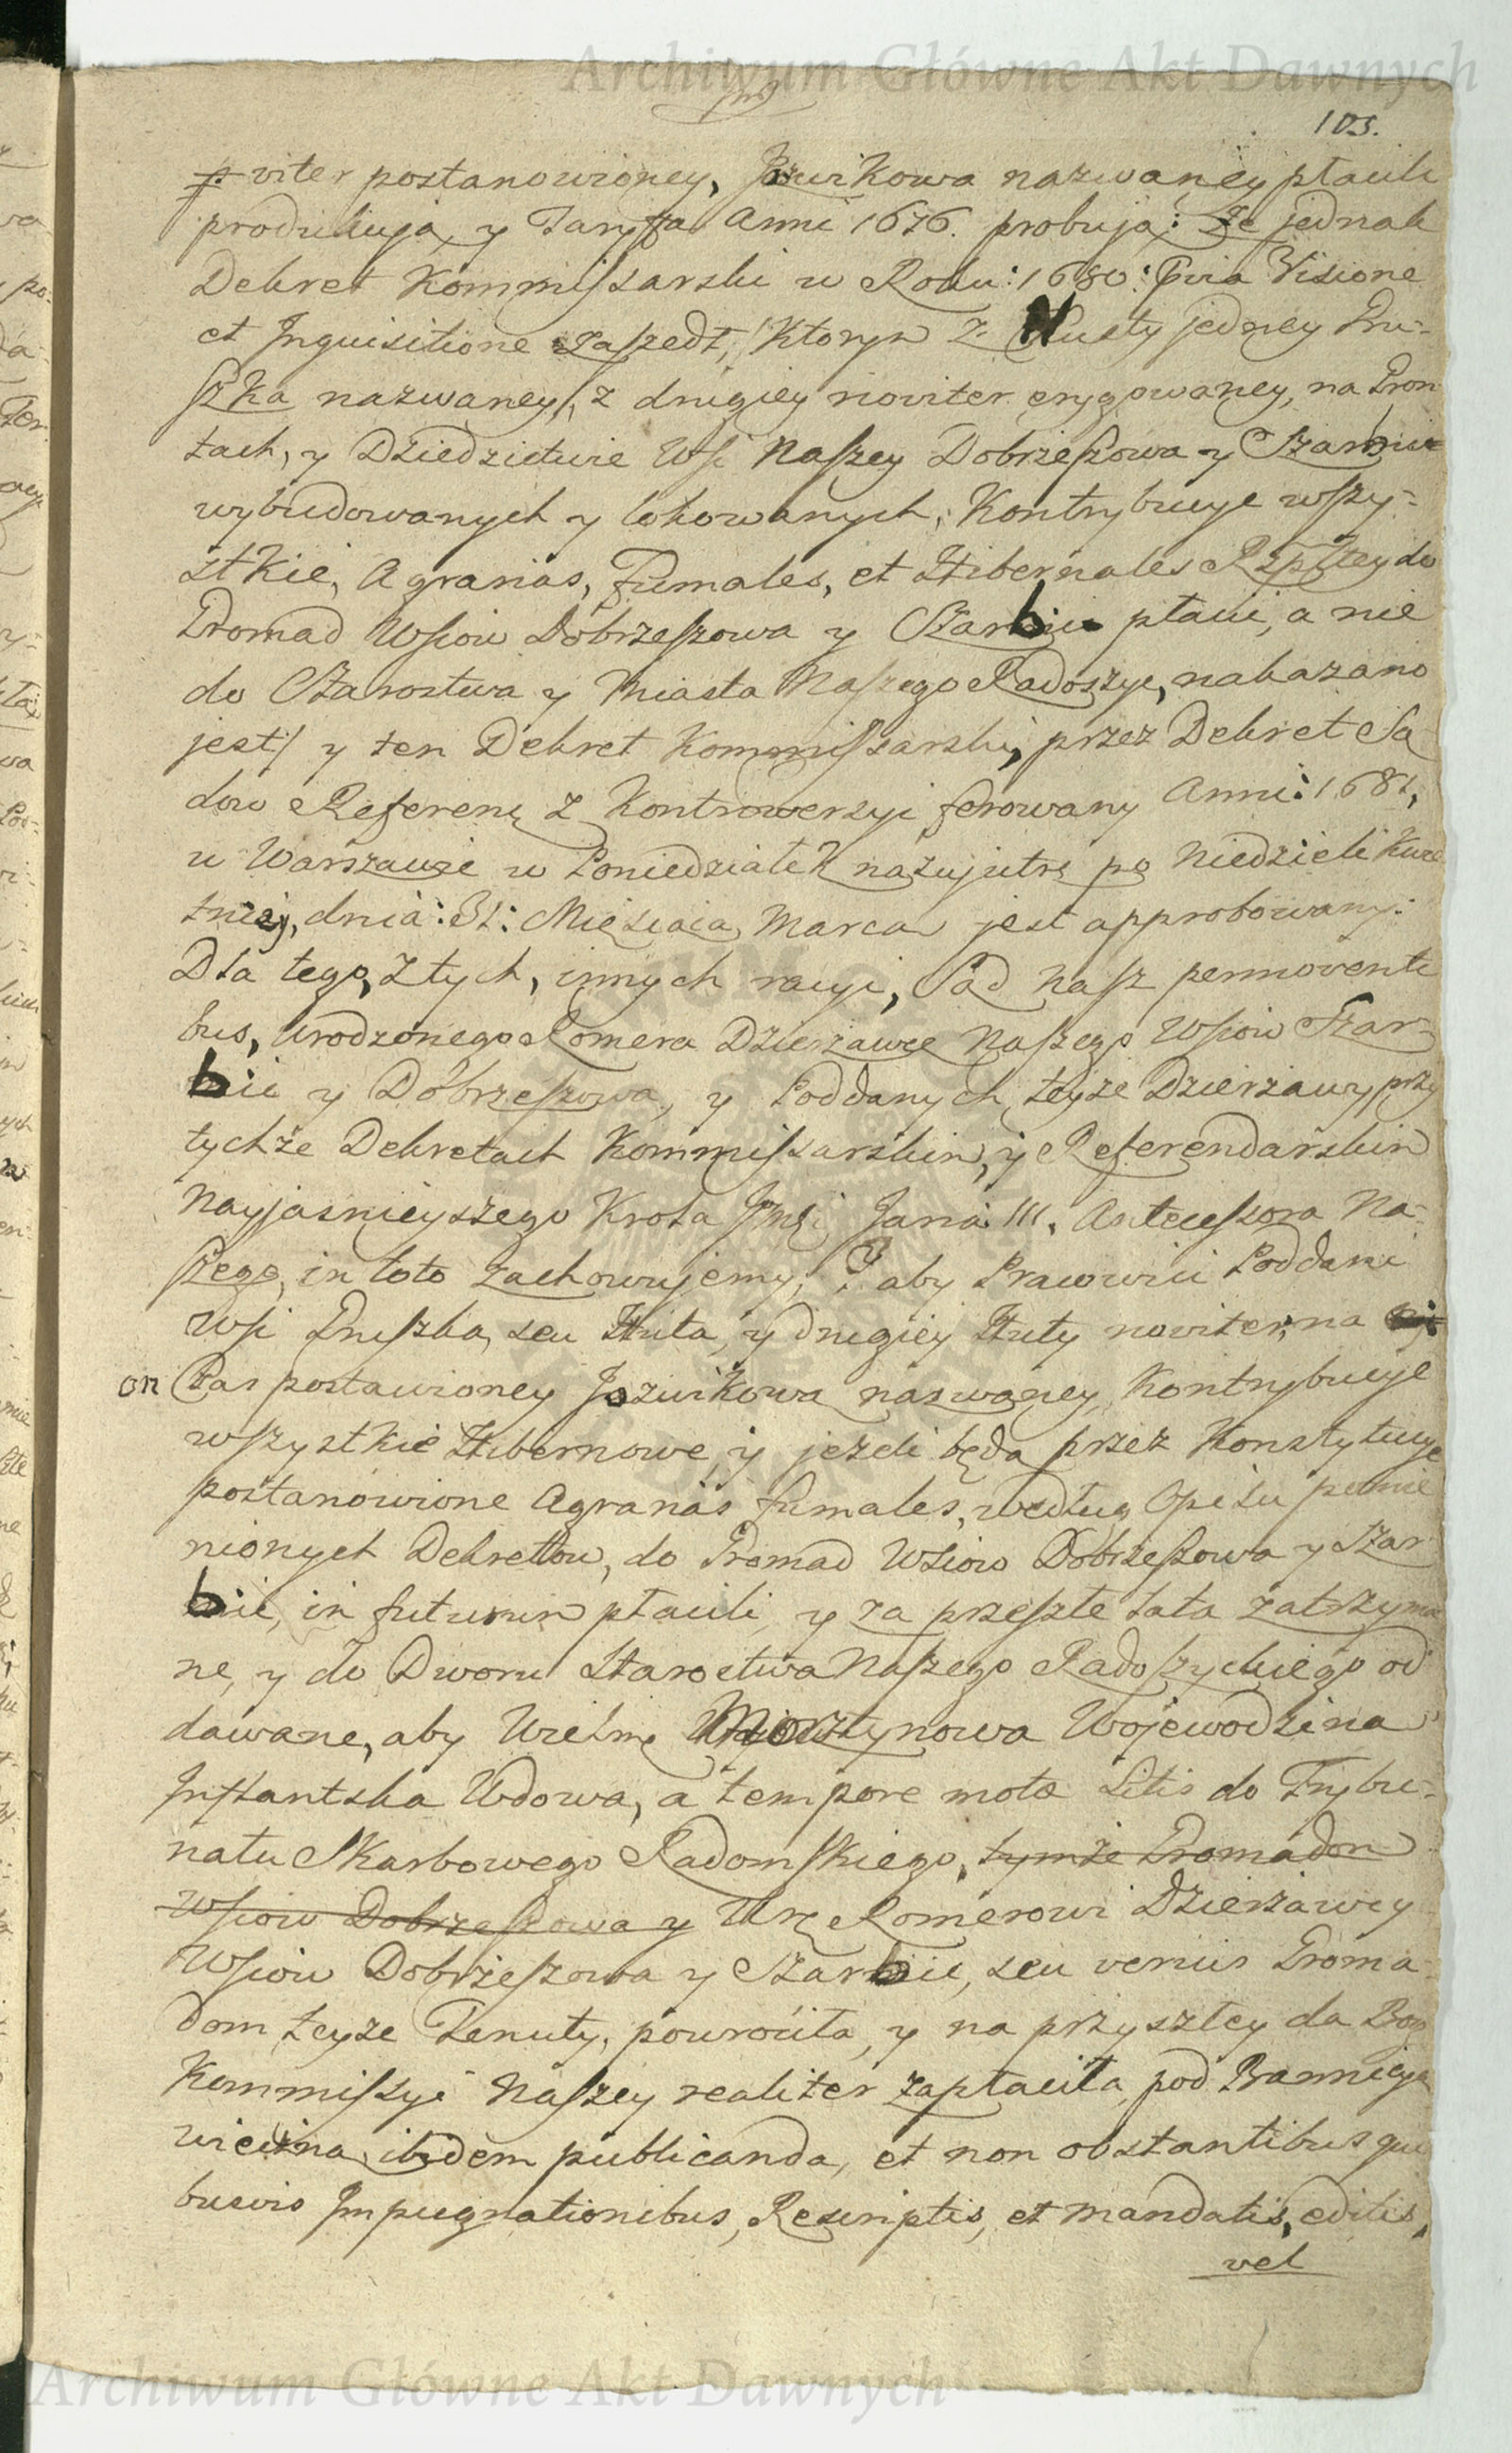 Archiwum Główne Akt Dawnych
103.
viter postanowioney, Jozwikowa nazwaney płacili
produkują, y Taryfą Anni 1676. probują: że jednak
Dekret Kommissarski w Roku: 1680: Prævia Visione
et Inquisitione zaszedł, Ktorym z Huty jedney Gru-
szka nazwaney, z drugiey noviter erygowaney, na Grun
tach, y Dziedzictwie Wsi Naszey Dobrzeszowa y Czarbia
wybudowanych y lokowanych, Kontrybucye wszy-
stkie, Agrarias, fumales, et Hibernales Rzpltey do
Gromad Wsiow Dobrzeszowa y Szarbiu płacić, a nie
do Starostwa y Miasta Naszego Radoszyc, nakazano
jest/ y ten Dekret Kommissarski, przez Dekret Są
dow Referen: z Kontrowersyi ferowany Anni: 1681,
w Warszawie w Poniedziałek nazajutrz po Niedzieli Kwie
tniey, dnia: 31: Miesiąca Marca jest approbowany:
Dla tego, z tych, innych racyi, Sąd Nasz permoventi
bus, Urodzonego Romera Dzierżawcę Naszego Wsiow Szar-
bie y Dobrzeszowa, y Poddanych teyże Dzierżawy, przy
tychże Dekretach Kommissarskim, y Referendarskim
Nayjaśnieyszego Krola Jmci Jana III. Antecessora Na-
szego, in toto zachowujemy, I aby Pracowici Poddani
Wsi Gruszka, seu Huta, y drugiey Huty noviter, na
on Czas postawioney Jozwikowa naswaney, Kontrybucye
wszystkie Hibernowe, y jezeli będą przez Konstytucye
postanowione Agrarias fumales, według Opisu pomie
nionych Dekretow, do Gromad Wsiow Dobrzeszowa y Szar
bie, in futurum płacili, y za przeszłe lata zatrzyma
ne, y do Dworu Starostwa Naszego Radoszyckiego od
dawane, aby Wielmę Morsztynowa Wojewodzina
Inflantska Wdowa, a tempore motæ Litis do Trybu-
nału Skarbowego Radomskiego, tymże Gromadom
Wsiow Dobrzeszowa y Urę Romerowi Dzierżawcy
Wsiow Dobrzeszowa y Szarbie, seu verius Groma
dom teyże Tenuty, powrociła, y na przyszłey da Bog
Kommissyi Naszey realiter zapłaciła, pod Bannicyą
wieczną, ibidem publicanda, et non obstantibus qui
busvis Impugnationibus, Rescriptis, et Mandatis, editis,
vel
Archiwum Główne Akt Dawnych